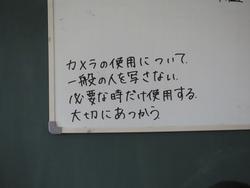 カメラの使用について.
一般の人を写さない.
必要な時だけ使用する.
大切にあつかう